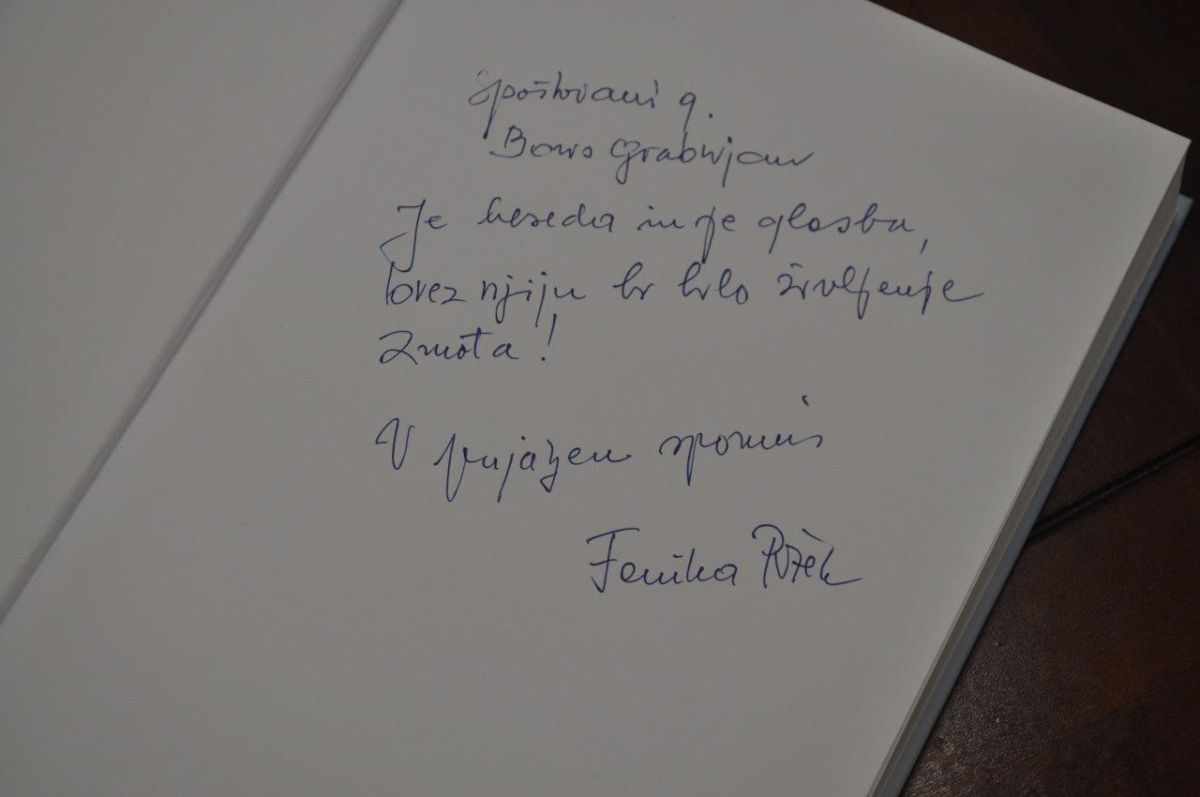 Spoštovani g.
Boris Grabrijan
Je beseda in je glasba,
brez njiju bi bilo življenje
zmota!
V prijazen spomin